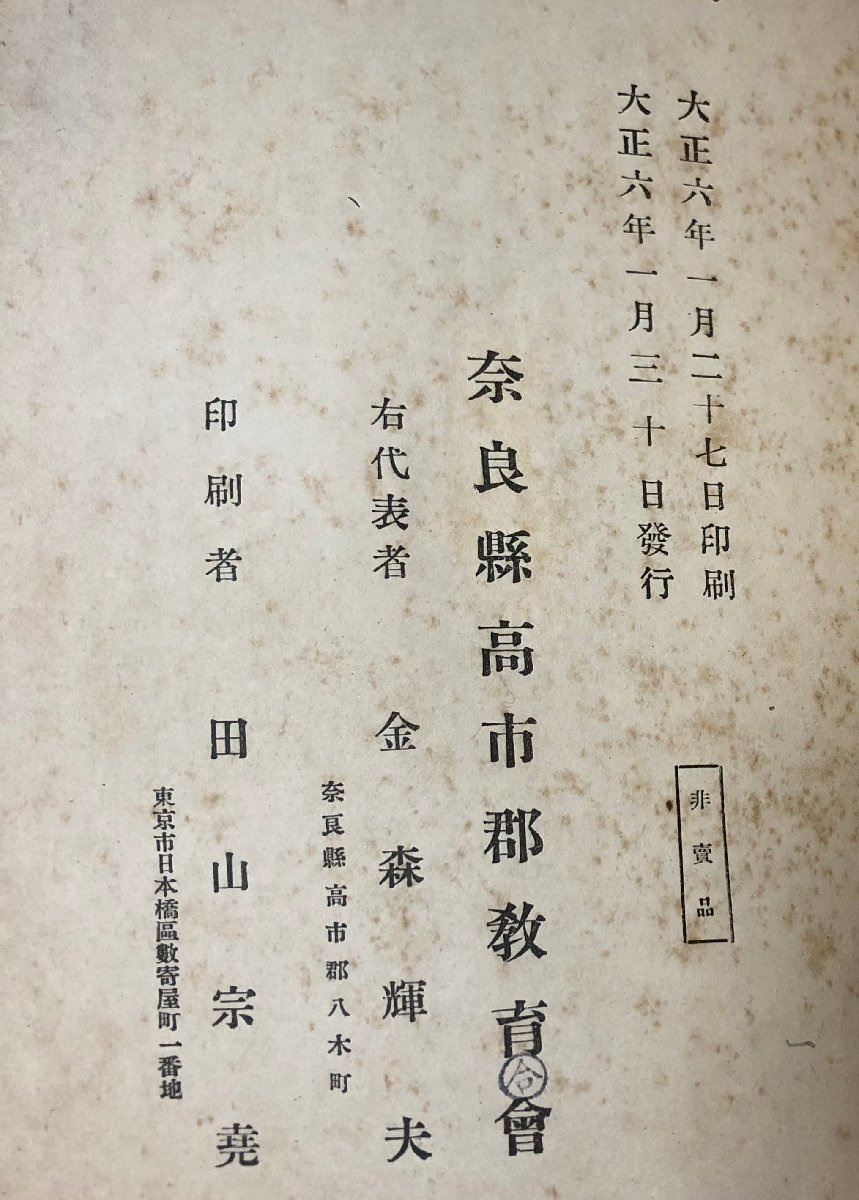 大正六年一月二十七日印刷
大正六年一月三十日發行
非賣品
奈良縣高市郡教育會
合
右代表者 金森輝夫
奈良縣高市郡八木町
印刷者 田山宗堯
東京市日本橋區數寄屋町一番地